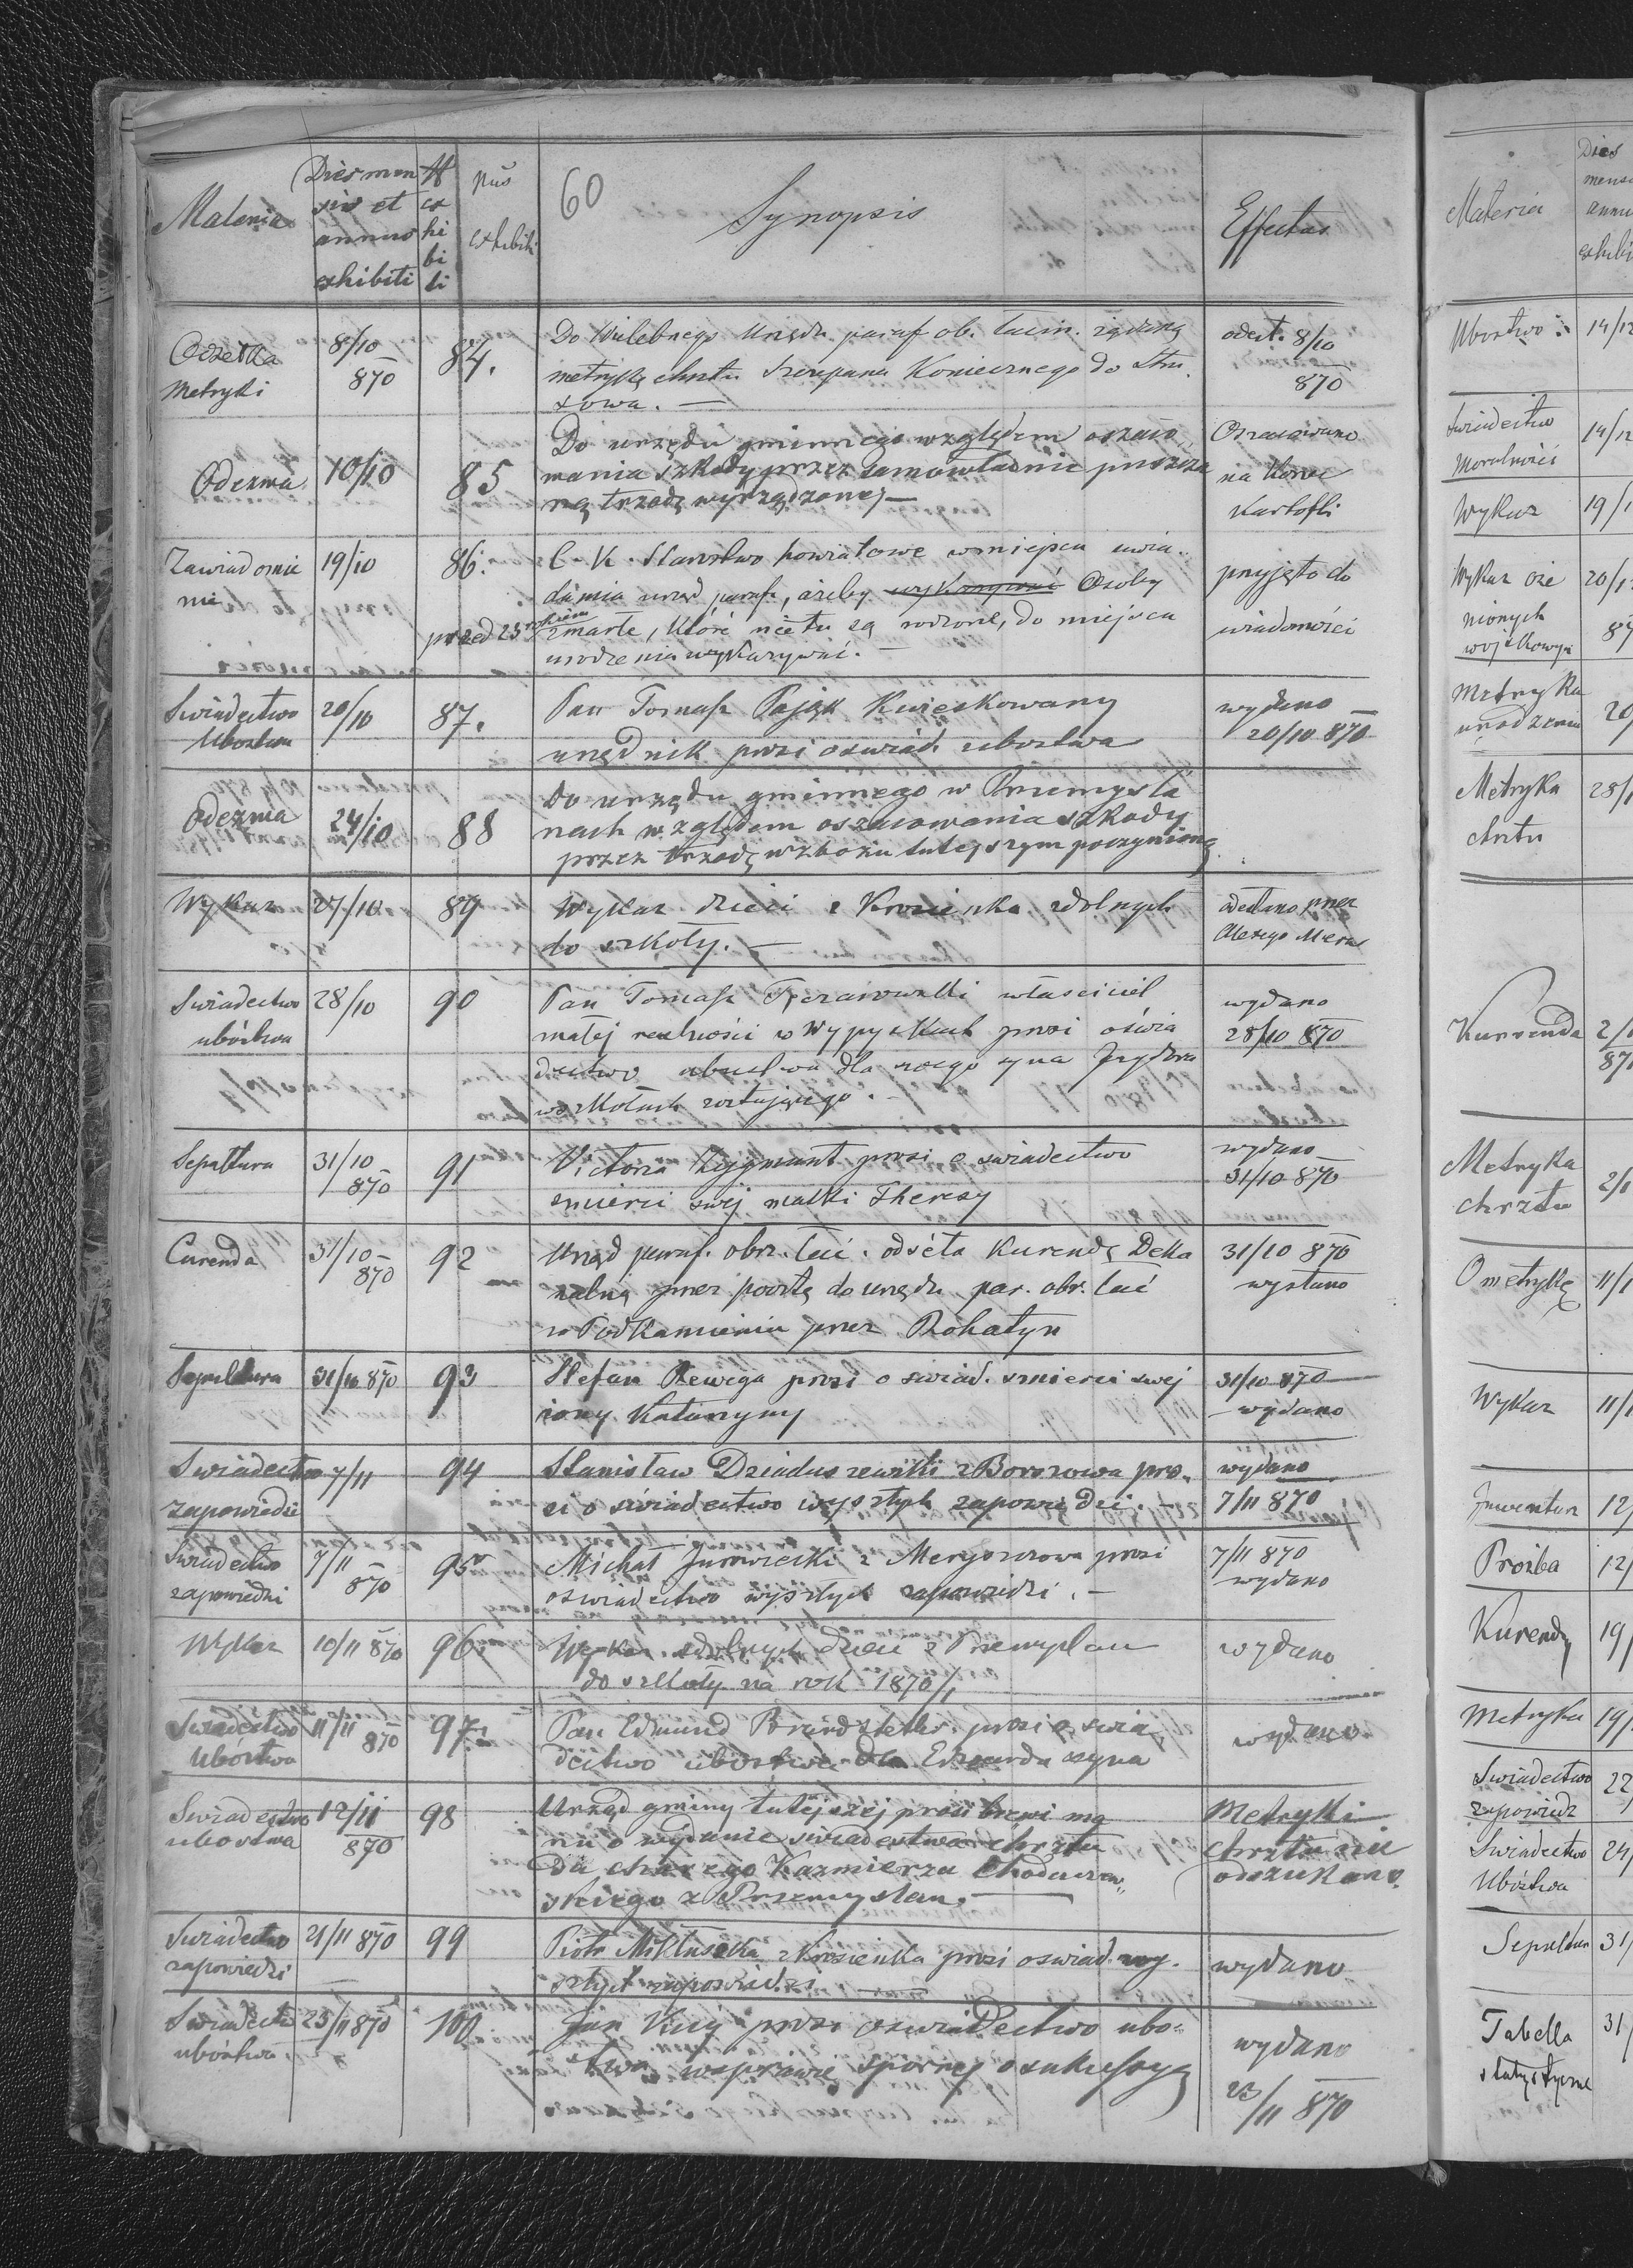 60
Materia
Dies men
sis et
annus
exhibiti
№
ex
hi
bi
ti
pũs
exhibiti
Synopsis
Effectus
Odsełka
Metryki
8/10
870
84.
Do Wielebnego Urzędu paraf. ob. łacin. żądaną
metrykę chrztu Szczepana Koniecznego do Stra
towa. —
odesł. 8/10
870
Odezwa
10/10
85
Do urzędu gminnego względem oszaco
wania szkody przez samowładnie puszcza
ną trzodę wyrządzonej —
Oszacowano
na Korce
Kartofli
Zawiadomie
nie
19/10
86.
C. K. Starostwo powiatowe w miejscu uwia
damia urząd paraf., ażeby Osoby
przed 23 rokiem zmarłe, które nie tu są rodzone, do miejsca
urodzenia wykazywać. —
przyjęto do
wiadomości
Świadectwo
Ubóstwa
20/10
87.
Pan Tomasz Pająk Kwieskowany
urzędnik prosi o świad. ubóstwa
wydano
20/10 870
Odezwa
24/10
88
Do urzędu gminnego w Przemyśla
nach względem oszacowania szkody
przez trzodę w zbożu tutejszym poczynioną
Wykaz
27/10
89
Wykaz dzieci z Krosienka zdolnych
do szkoły. —
odesłano przez
Świadectwo
ubóstwa
28/10
90
Pan Tomasz właściciel
małej realności w Wypyskach prosi o świa
dectwo ubustwa dla swego syna Izydora
w szkołach zostającego. —
wydano
28/10 870
Sepultura
31/10
870
91
Victoria Zygmunt prosi o swiadectwo
smierci swej matki Theresy
wydano
31/10 870
Curenda
31/10
870
92
Urząd paraf. obrz. łać. odséła Kurendę Deka
nalną przez pocztę do urzędu par. obr. łać
w Podkamieniu przez Rohatyn
31/10 870
wysłano
Sepultura
31/10 870
93
Stefan Rewega prosi o świad. smierci swej
żony Katarzyny
31/10 870
wydano
Swiadectwo
zapowiedzi
7/11
94
Stanisław Dziaduszewski z Borszowa pro
si o świadectwo wyszłych zapowiedzi. —
wydano
7/11 870
Swiadectwo
zapowiedzi
7/11
870
95
Michał Jurowiecki z Meryszczowa prosi
o swiadectwo wyszłych zapowiedzi. —
7/11 870
wydano
Wykaz
10/11 870
96.
Wykaz zdolnych dzieci z Przemyślan
do szkoły na rok 1870/1
wydano
Swiadectwo
Ubóstwa
11/11
870
97.
Pan Edmund prosi o swia
dectwo ubóstwa dla Edwarda syna
wydano
Swiadectwo
ubostwa
12/11
870
98
Urząd gminy tutejszej prosi brevi ma
nu o wydanie świadectwa chrztu
dla chorego Kazmierza
skiego z Przemyslan. —
Metryki
chrztu nie
odszukano.
Swiadectwo
zapowiedzi
21/11 870
99
Piotr Mikłuszka z Krosienka prosi o swiad. wy
szłych zapowiedzi
wydano
Swiadectwo
ubóstwa
23/11 870
100
Jan Kicij prosi o swiadectwo ubó
stwa w sprawie spornej o sukcesyą
wydano
23/11 870
Materia
Dies
mensi
annu
exhibi
Ubostwo
14/12
Swiadectwo
Moralności
14/12
Wykaz
19/1
Wykaz oże
nionych
wojskowych
20/1
87
Metryka
urodzenia
20/
Metryka
chrztu
28/1
Kurrenda
2/1
87
Metryka
chrztu
2/1
O metrykę
11/1
Wykaz
11/1
Inwentarz
12/
Prośba
12/
Kurendy
19/
Metryka
19/
Swiadectwo
zapowiedz
22
Swiadectwo
Ubóstwa
24/
Sepultura
31/
Tabella
statystyczne
31/